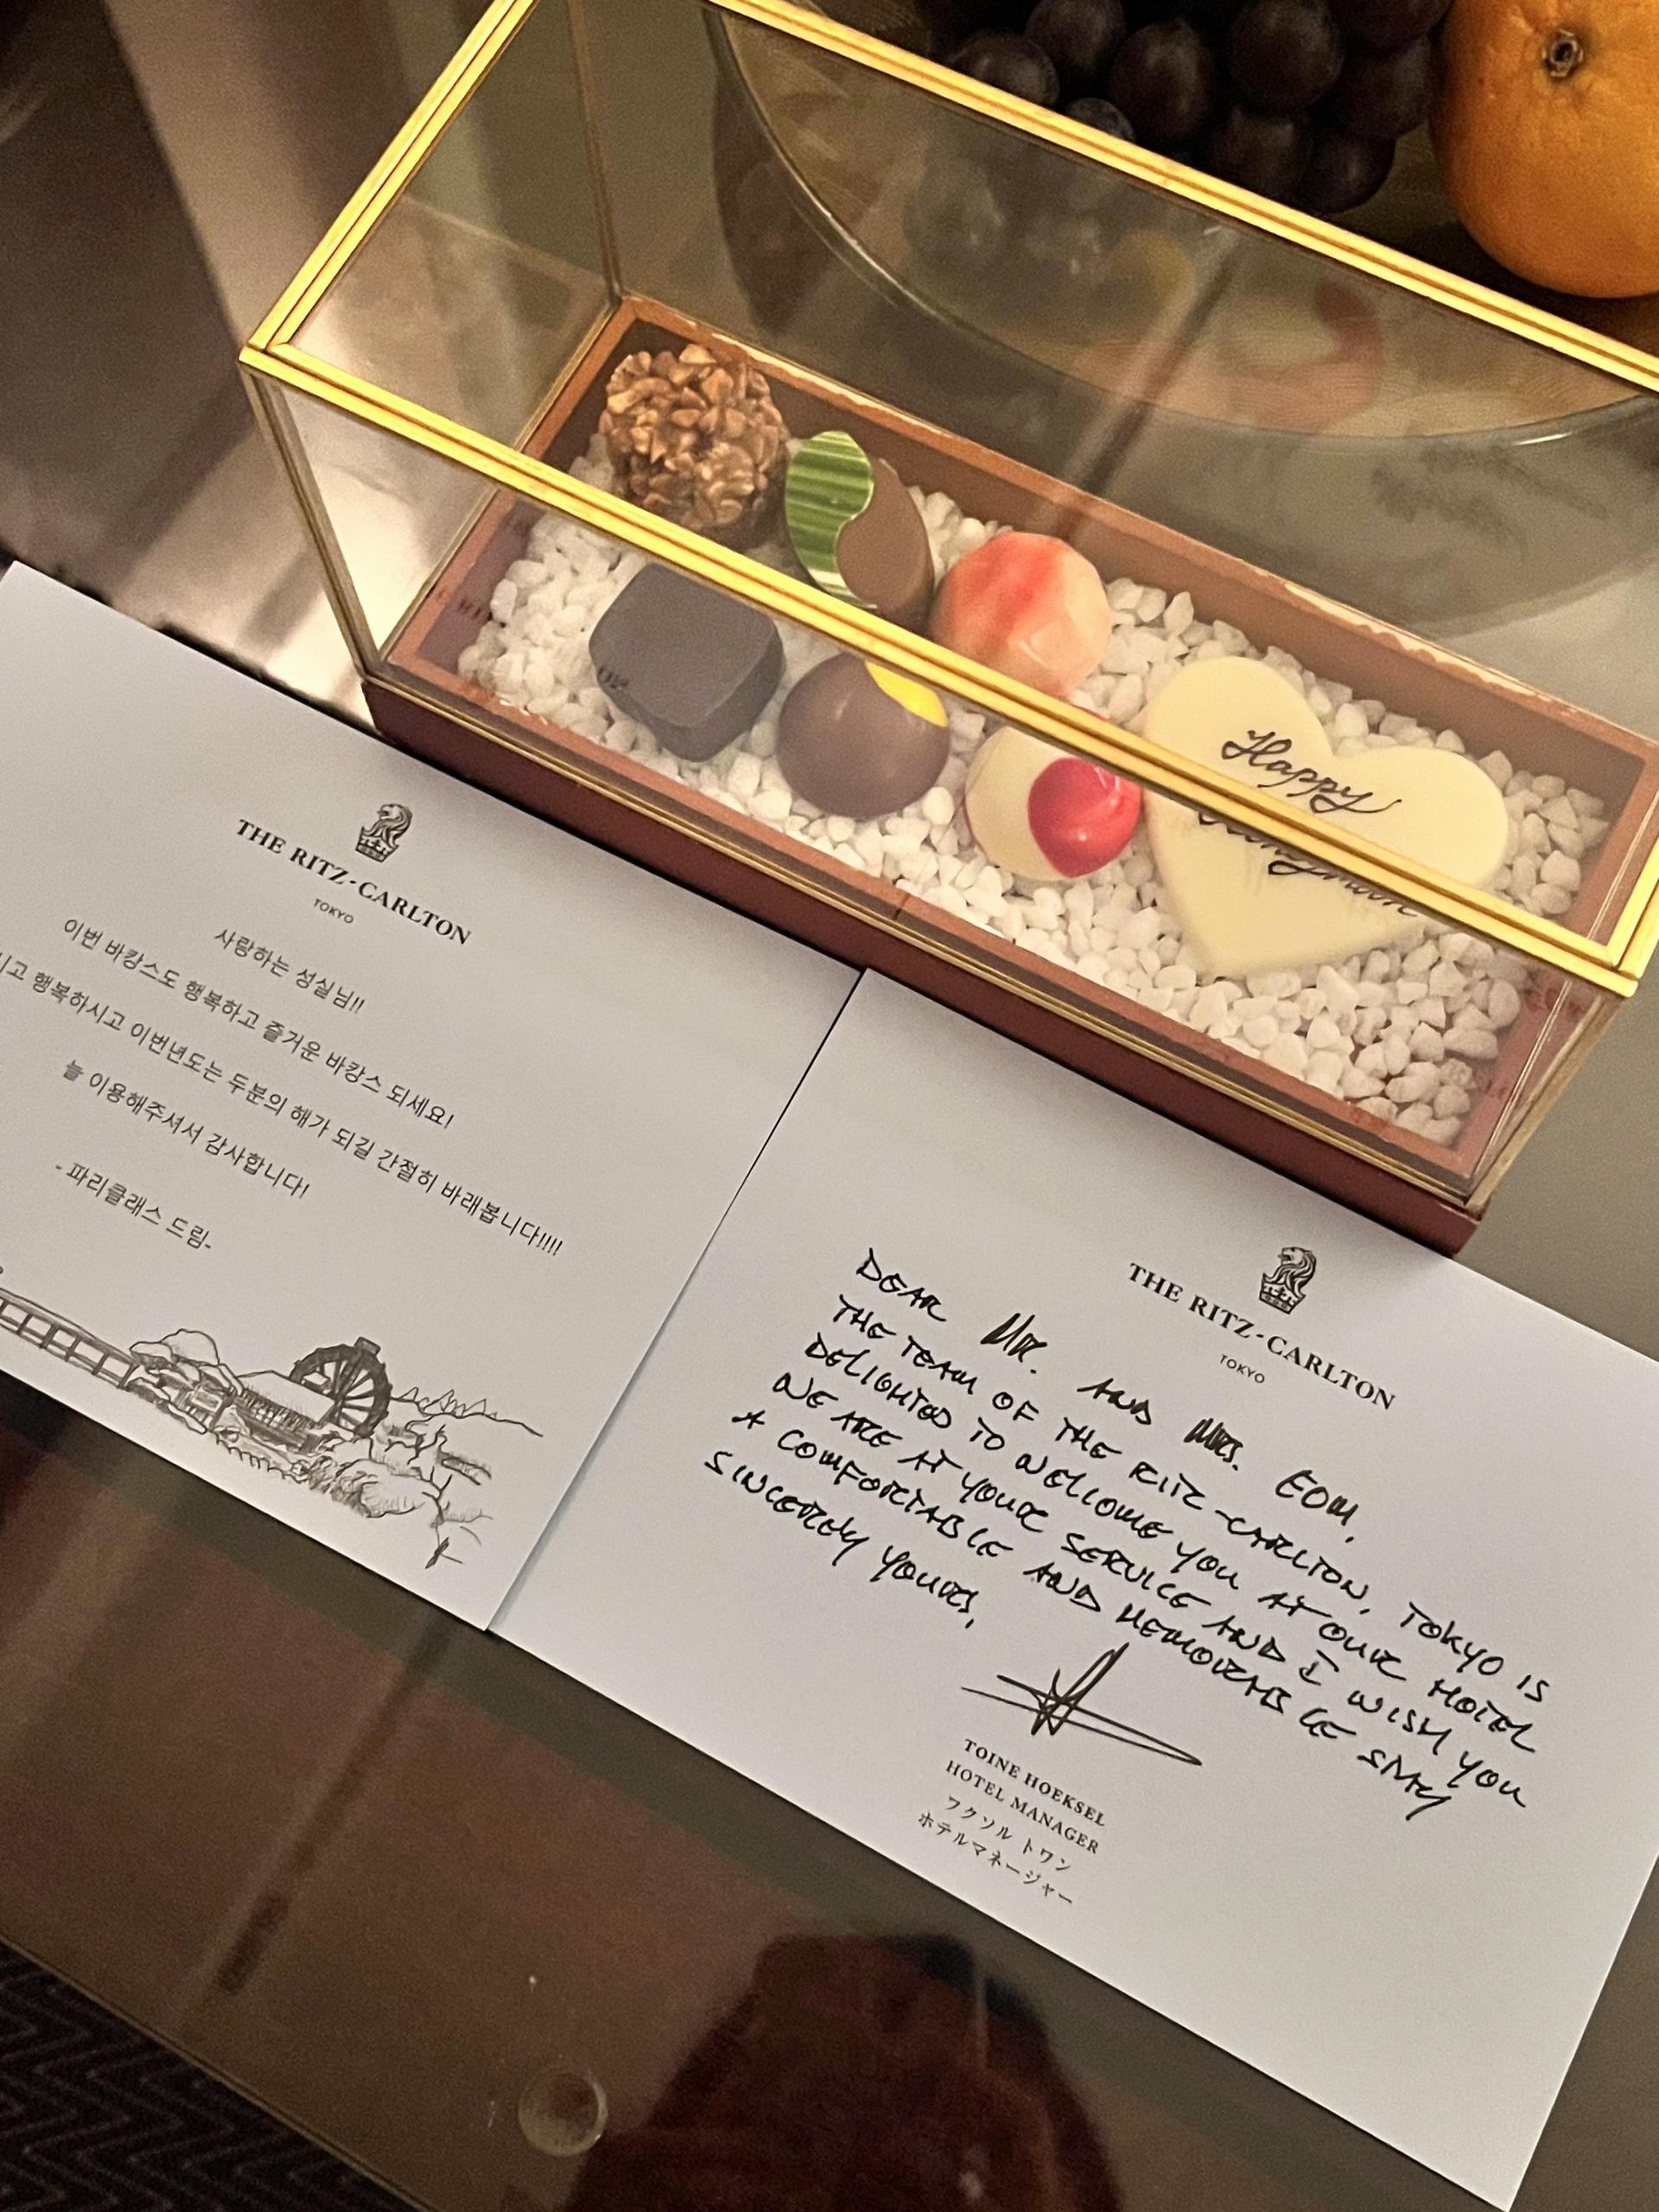 Happy
THE RITZ-CARLTON
TOKYO
사랑하는 성실님!!
이번 바캉스도 행복하고 즐거운 바캉스 되세요!
행복하시고 이번년도는 두분의 해가 되길 간절히 바래봅니다!!!!
늘 이용해주셔서 감사합니다!
- 파리클래스 드림-
THE RITZ-CARLTON
TOKYO
DEAR MR. AND MRS. EOM,
THE TEAM OF THE RITZ-CARLTON, TOKYO IS
DELIGHTED TO WELCOME YOU AT OUR HOTEL
WE ARE AT YOUR SERVICE AND I WISH YOU
A COMFORTABLE AND MEMORABLE STAY
SINCERELY YOURS,
TOINE HOEKSEL
HOTEL MANAGER
フクソル トワン
ホテルマネージャー